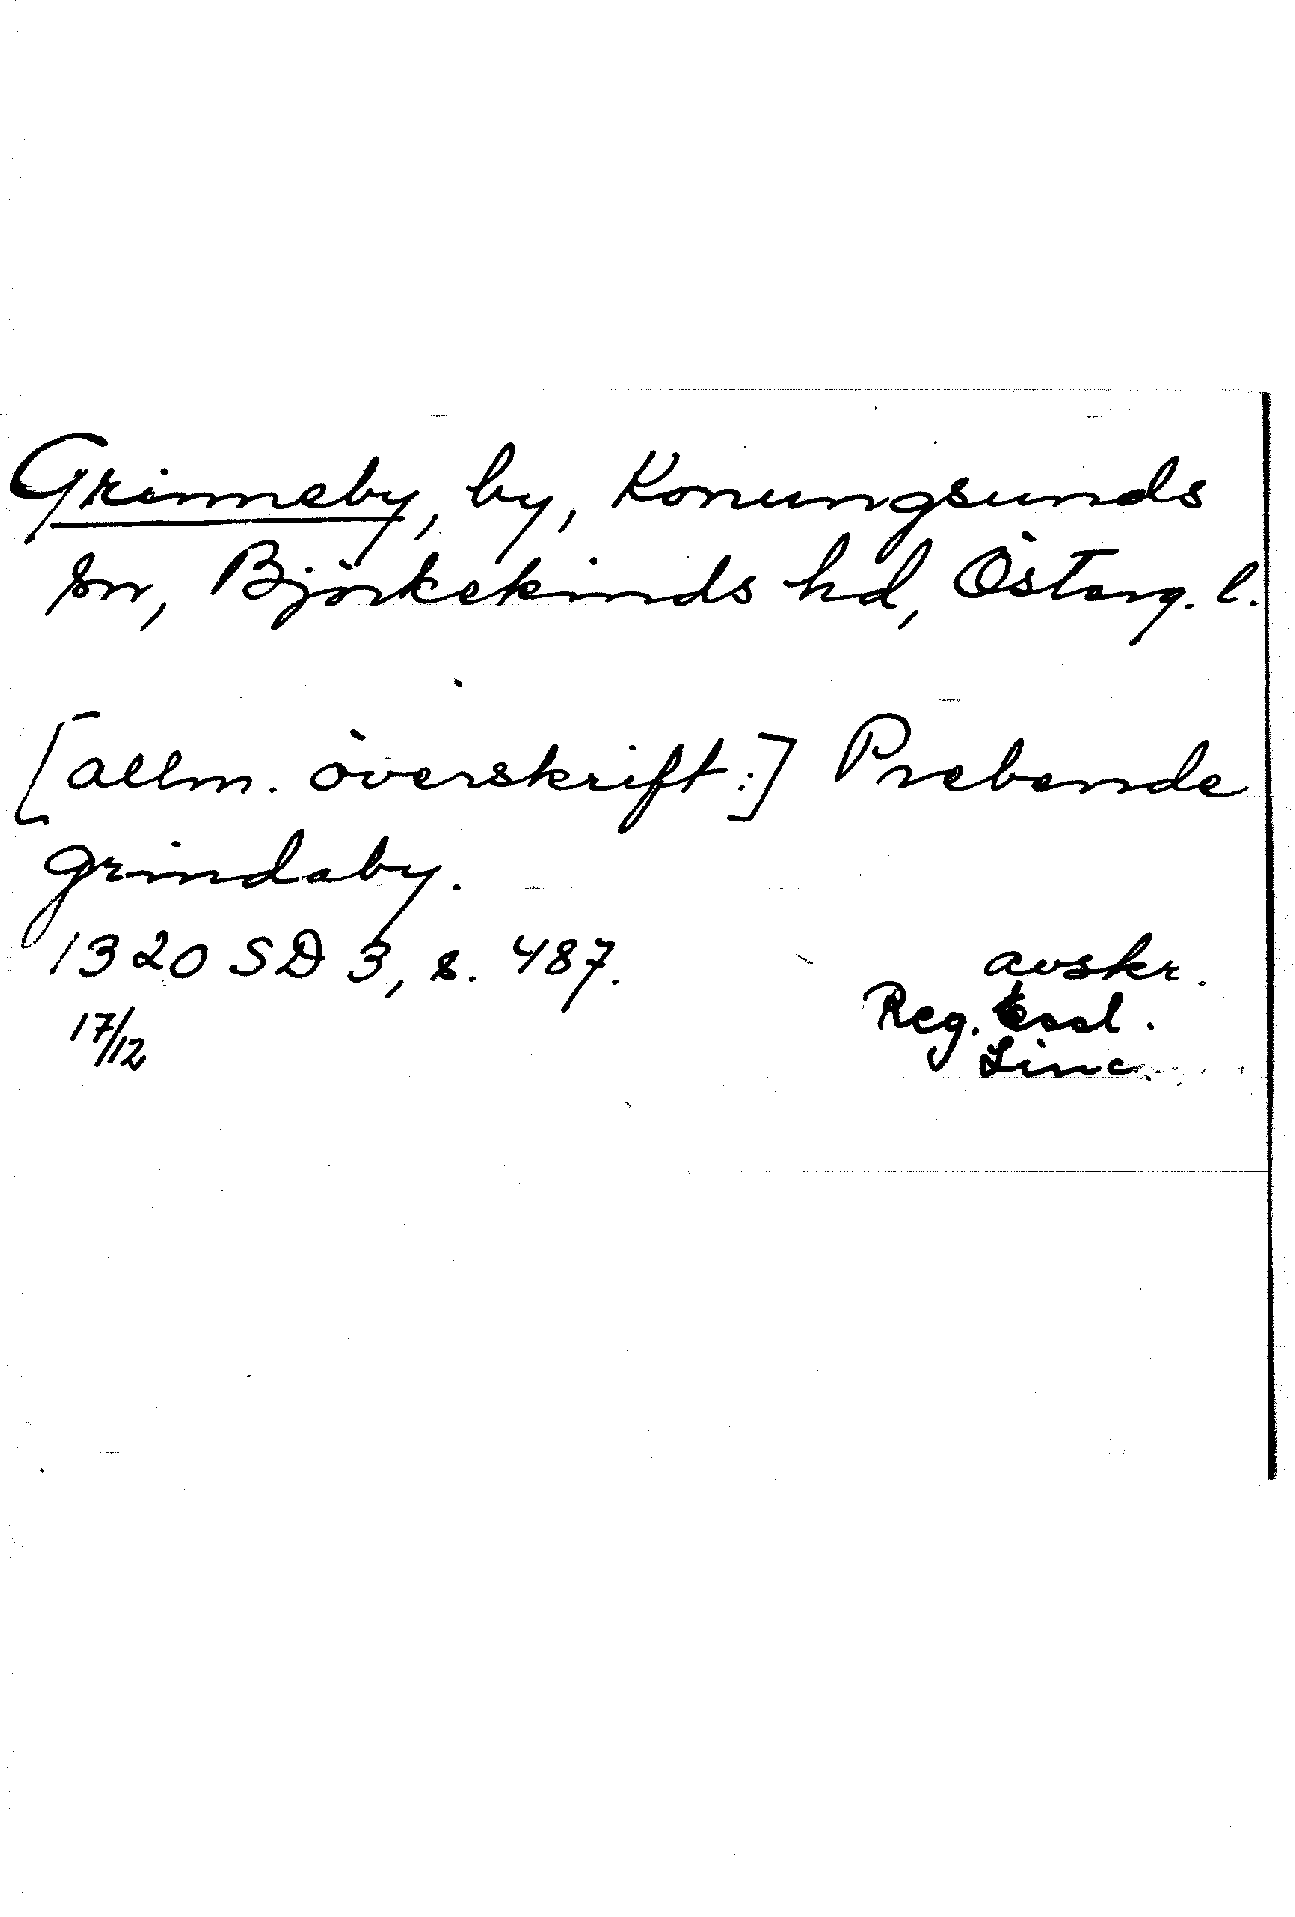 Grinneby, by, Konungsunds
sn, Björkekinds hd, Österg. l.
[allm. överskrift:] Prebende
grindaby.
1320 SD 3, s. 487. avskr.
17/12 Reg. Eccl.
Linc